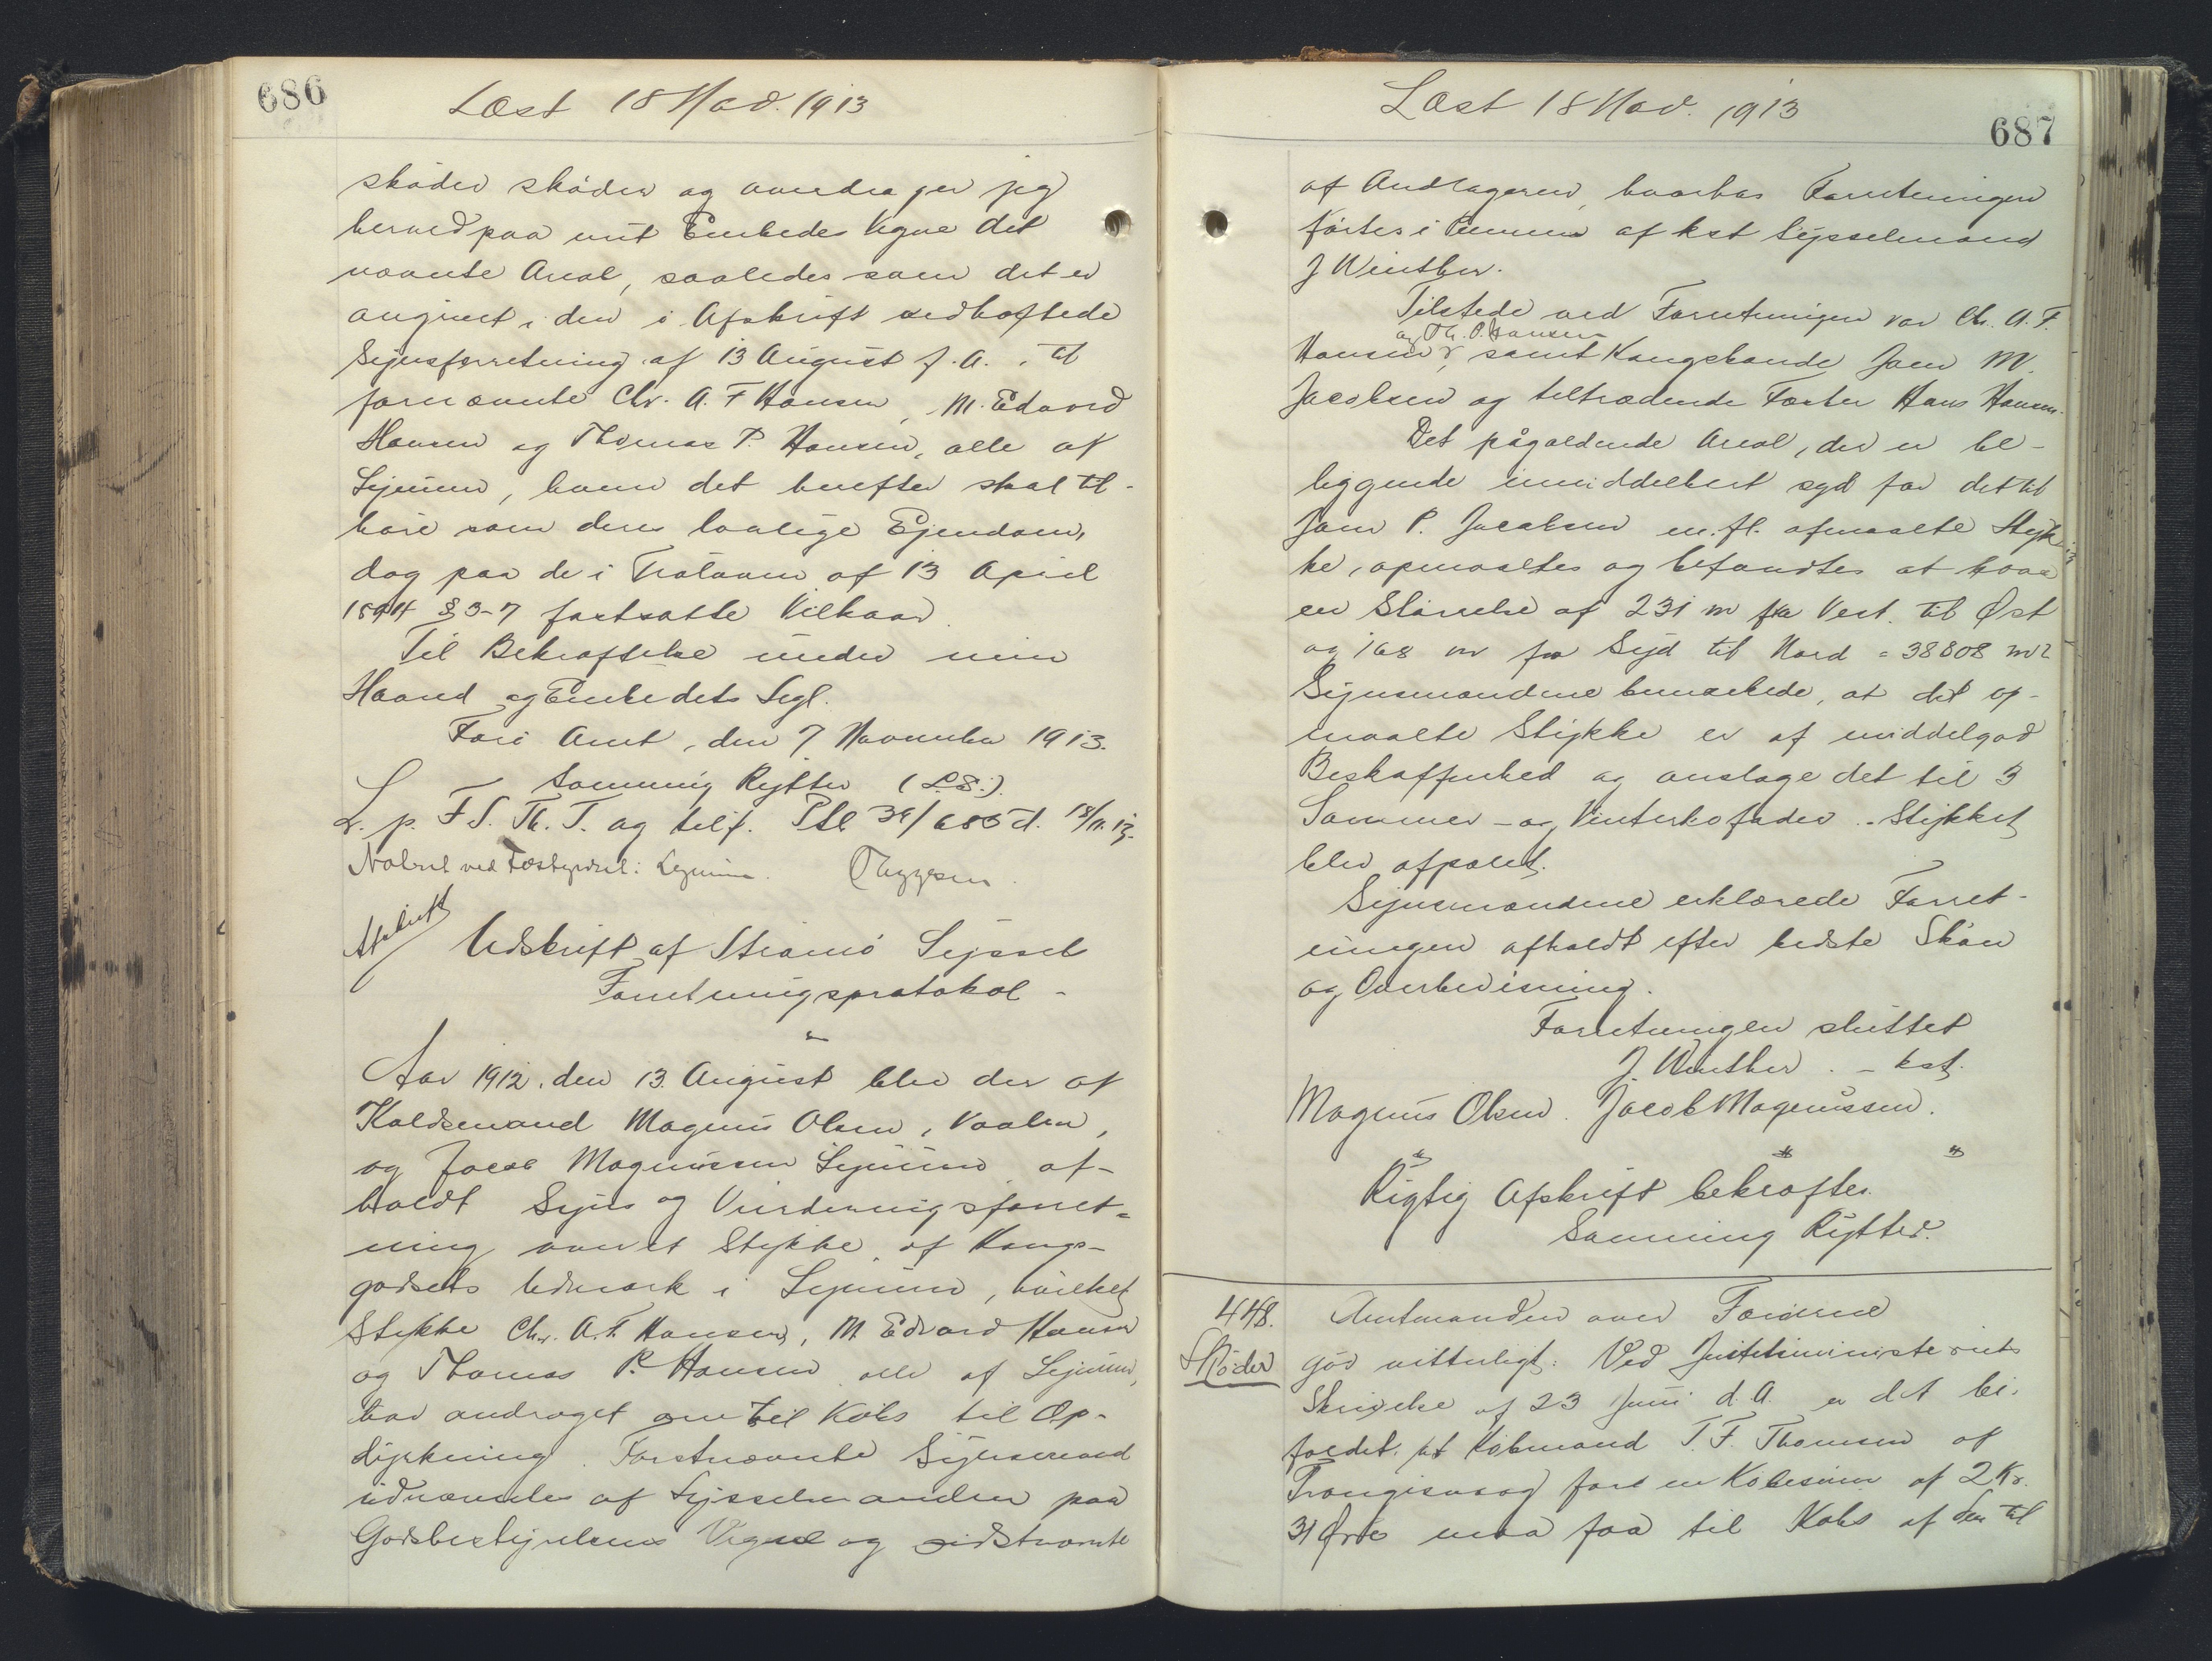 686
Læst 18 Nov. 1913
skøder skøder og overdrager jeg
herved paa mit Embedes Vegne det
nævnte Areal, saaledes som det er
angivet i den i Afskrift vedhæftede
Synsforretning af 13 August f.A. til
fornævnte Chr. A. F Hansen, M. Edvard
Hansen og Thomas P. Hansen, alle af
Lejnum, hvem det herefter skal til-
høre som deres lovlige Ejendom,
dog paa de i Lov af 13 April
1894 § 3-7 fastsatte Vilkaar.
Til Bekræftelse under min
Haand og Embedets Segl.
Færø Amt, den 7 November 1913.
Sømming Rytter (L.S.)
L. p. F S. Th. T. og tilf. Ptl 3e/685 d. 18/11.13.
Noteret ved Fæstegodset: Lejnum.
Afskrift
Udskrift af Strømø Syssel
Forretningsprotokol -
Aar 1912. den 13. August blev der af
Koldsmand Magnus Olsen, Vaalen,
og Jacob Magnussen Lejnum af-
holdt Syns og Vurderingsforret-
ning over et Stykke af Konge-
godsets Udmark i Lejnum, hvilket
Stykke Chr. A. F. Hansen, M. Edvard Hansen
og Thomas P. Hansen alle af Lejnum,
har andraget om til Købs til Op-
dyrkning. Førstnævnte Synsmand
udnævntes af Sysselmanden paa
Godsbestyrelsens Vegne og sidstnævnte
Læst 18 Nov. 1913
687
af Andrageren, hvorhos Forretningen
førtes i Pennen af kst Sysselmand
J Winther.
Tilstede ved Forretningen var Ch. A. F.
og Th. P. Hansen
Hansen, samt Kongsbonde Joen M.
Jacobsen og tiltrædende Fæster Hans Hansen.
Det pågældende Areal, der er be-
liggende umiddelbart syd for det til
Joen P. Jacobsen m. fl. afmaalte Styk-
ke, opmaaltes og befandtes at have
en Størrelse af 231 m fra Vest til Øst
og 168 m fra Syd til Nord = 38808 m2
Synsmændene bemærkede, at det op-
maalte Stykke er af middelgod
Beskaffenhed og anslog det til 3
Sommer- og Vinterkofoder. - Stykket
blev afpælet.
Synsmændene erklærede Forret-
ningen afholdt efter bedste Skøn
og Overbevisning.
Forretningen sluttet
J. Winther. - kst.
Magnus Olsen. Jacob Magnussen.
Rigtig Afskrift bekræftes.
Sømming Rytter.
448.
Skøder
Amtmanden over Færøerne
gør vitterligt: Ved Justitsministeriets
Skrivelse af 23 Juni d. A. er det bi-
faldet, at Købmand T. F. Thomsen af
Trongisvaag for en Købesum af 2 Kr.
31 Øre maa faa til Købs af den til